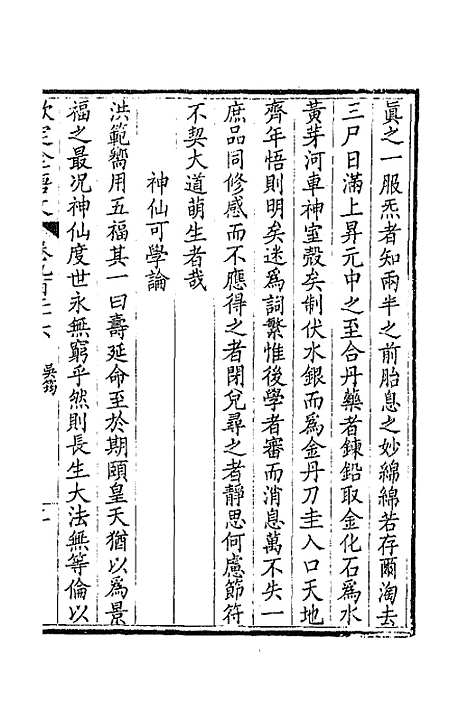 眞之一服炁者知兩半之前胎息之妙綿綿若存爾淘去
三尸日滿上昇元中之至合丹藥者鍊鉛取金化石為水
黃芽河車神室殼矣制伏水銀而為金丹刀圭入口天地
齊年悟則明矣迷為詞繁惟後學者審而消息萬不失一
庶品同修感而不應得之者閉兌尋之者靜思何慮節符
不契大道萌生者哉
神仙可學論
洪範嚮用五福其一曰壽延命至於期頤皇天猶以為景
福之最况神仙度世永無窮乎然則長生大法無等倫以
欽定全唐文 卷九百二十六 吳筠